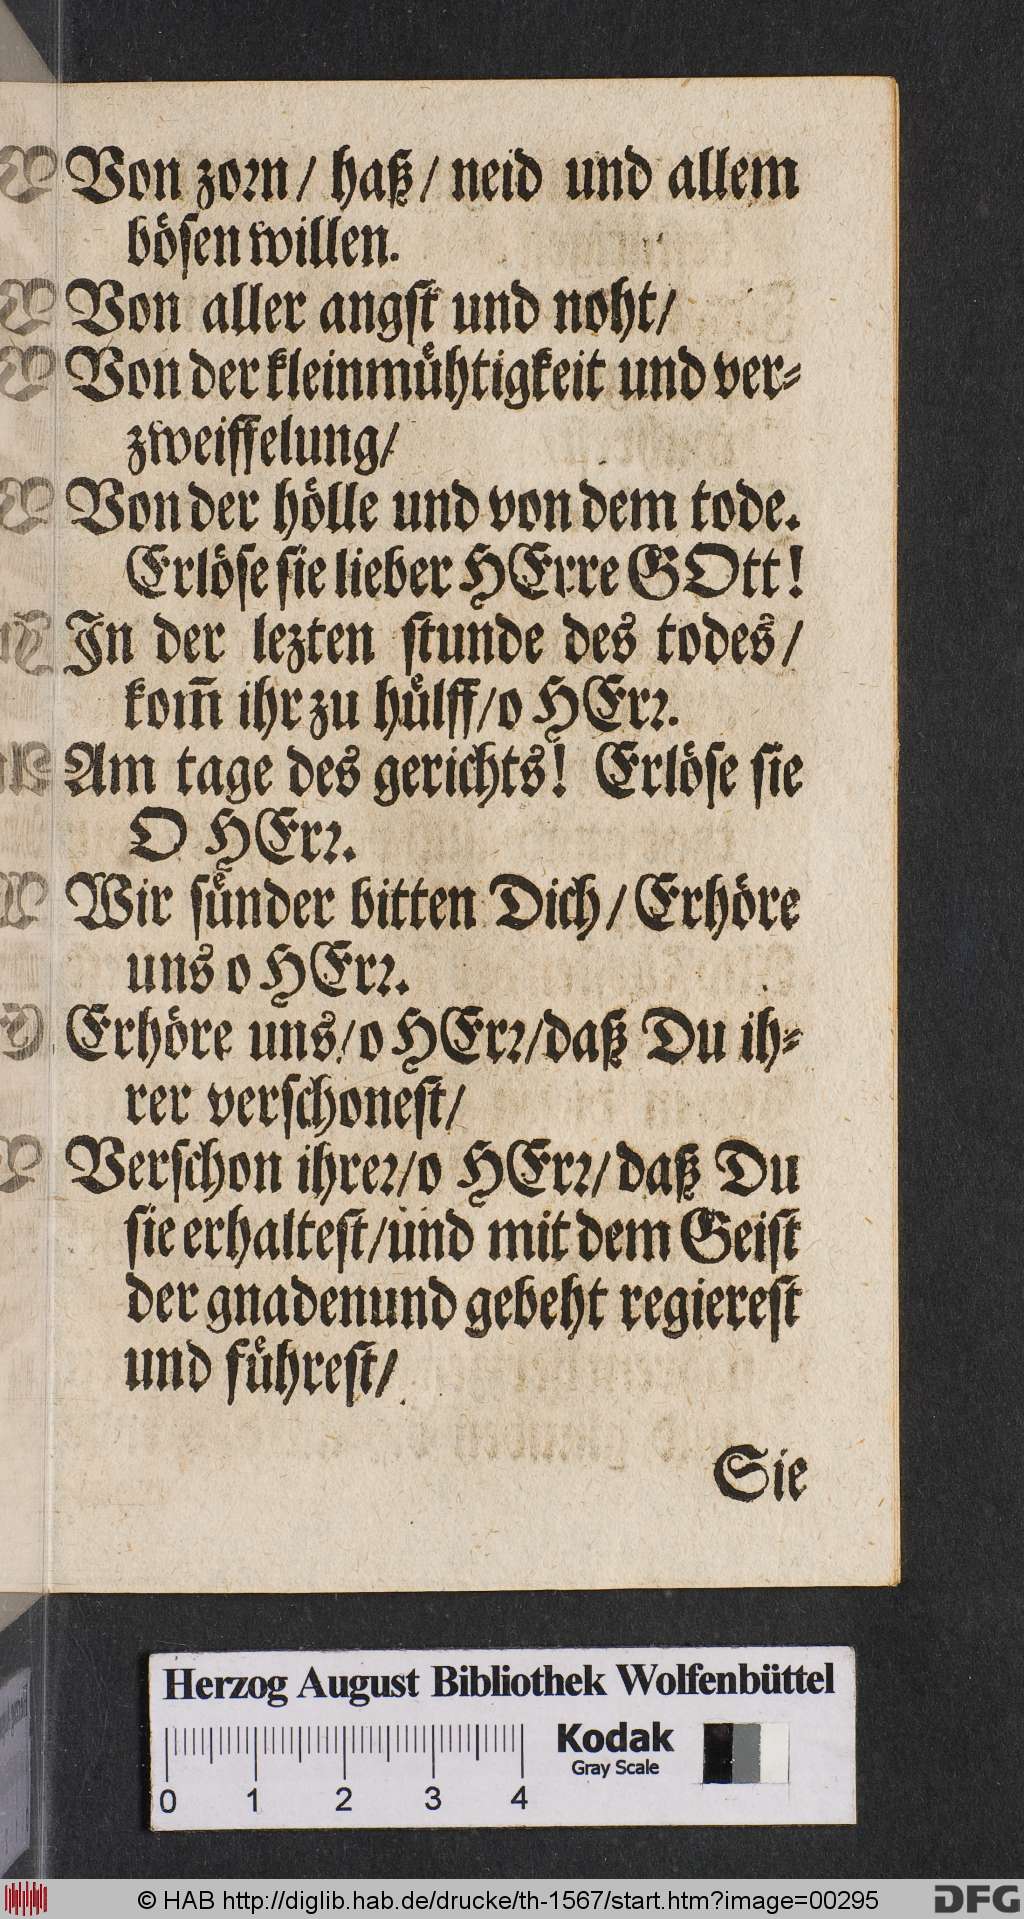 Von zorn/ haß/ neid und allem
bösen willen.
Von aller angst und noht/
Von der kleinmühtigkeit und ver-
zweiffelung/
Von der hölle und von dem tode.
Erlöse sie lieber HErre GOtt!
In der lezten stunde des todes/
kom̃ ihr zu hülff/o HErr.
Am tage des gerichts! Erlöse sie
O HErr.
Wir sünder bitten Dich/ Erhöre
uns o HErr.
Erhöre uns/o HErr/daß Du ih-
rer verschonest/
Verschon ihrer/o HErr/daß Du
sie erhaltest/und mit dem Geist
der gnadenund gebeht regierest
und führest/
Sie
Herzog August Bibliothek Wolfenbüttel
Kodak
Gray Scale
0 1 2 3 4
© HAB http://diglib.hab.de/drucke/th-1567/start.htm?image=00295
DFG